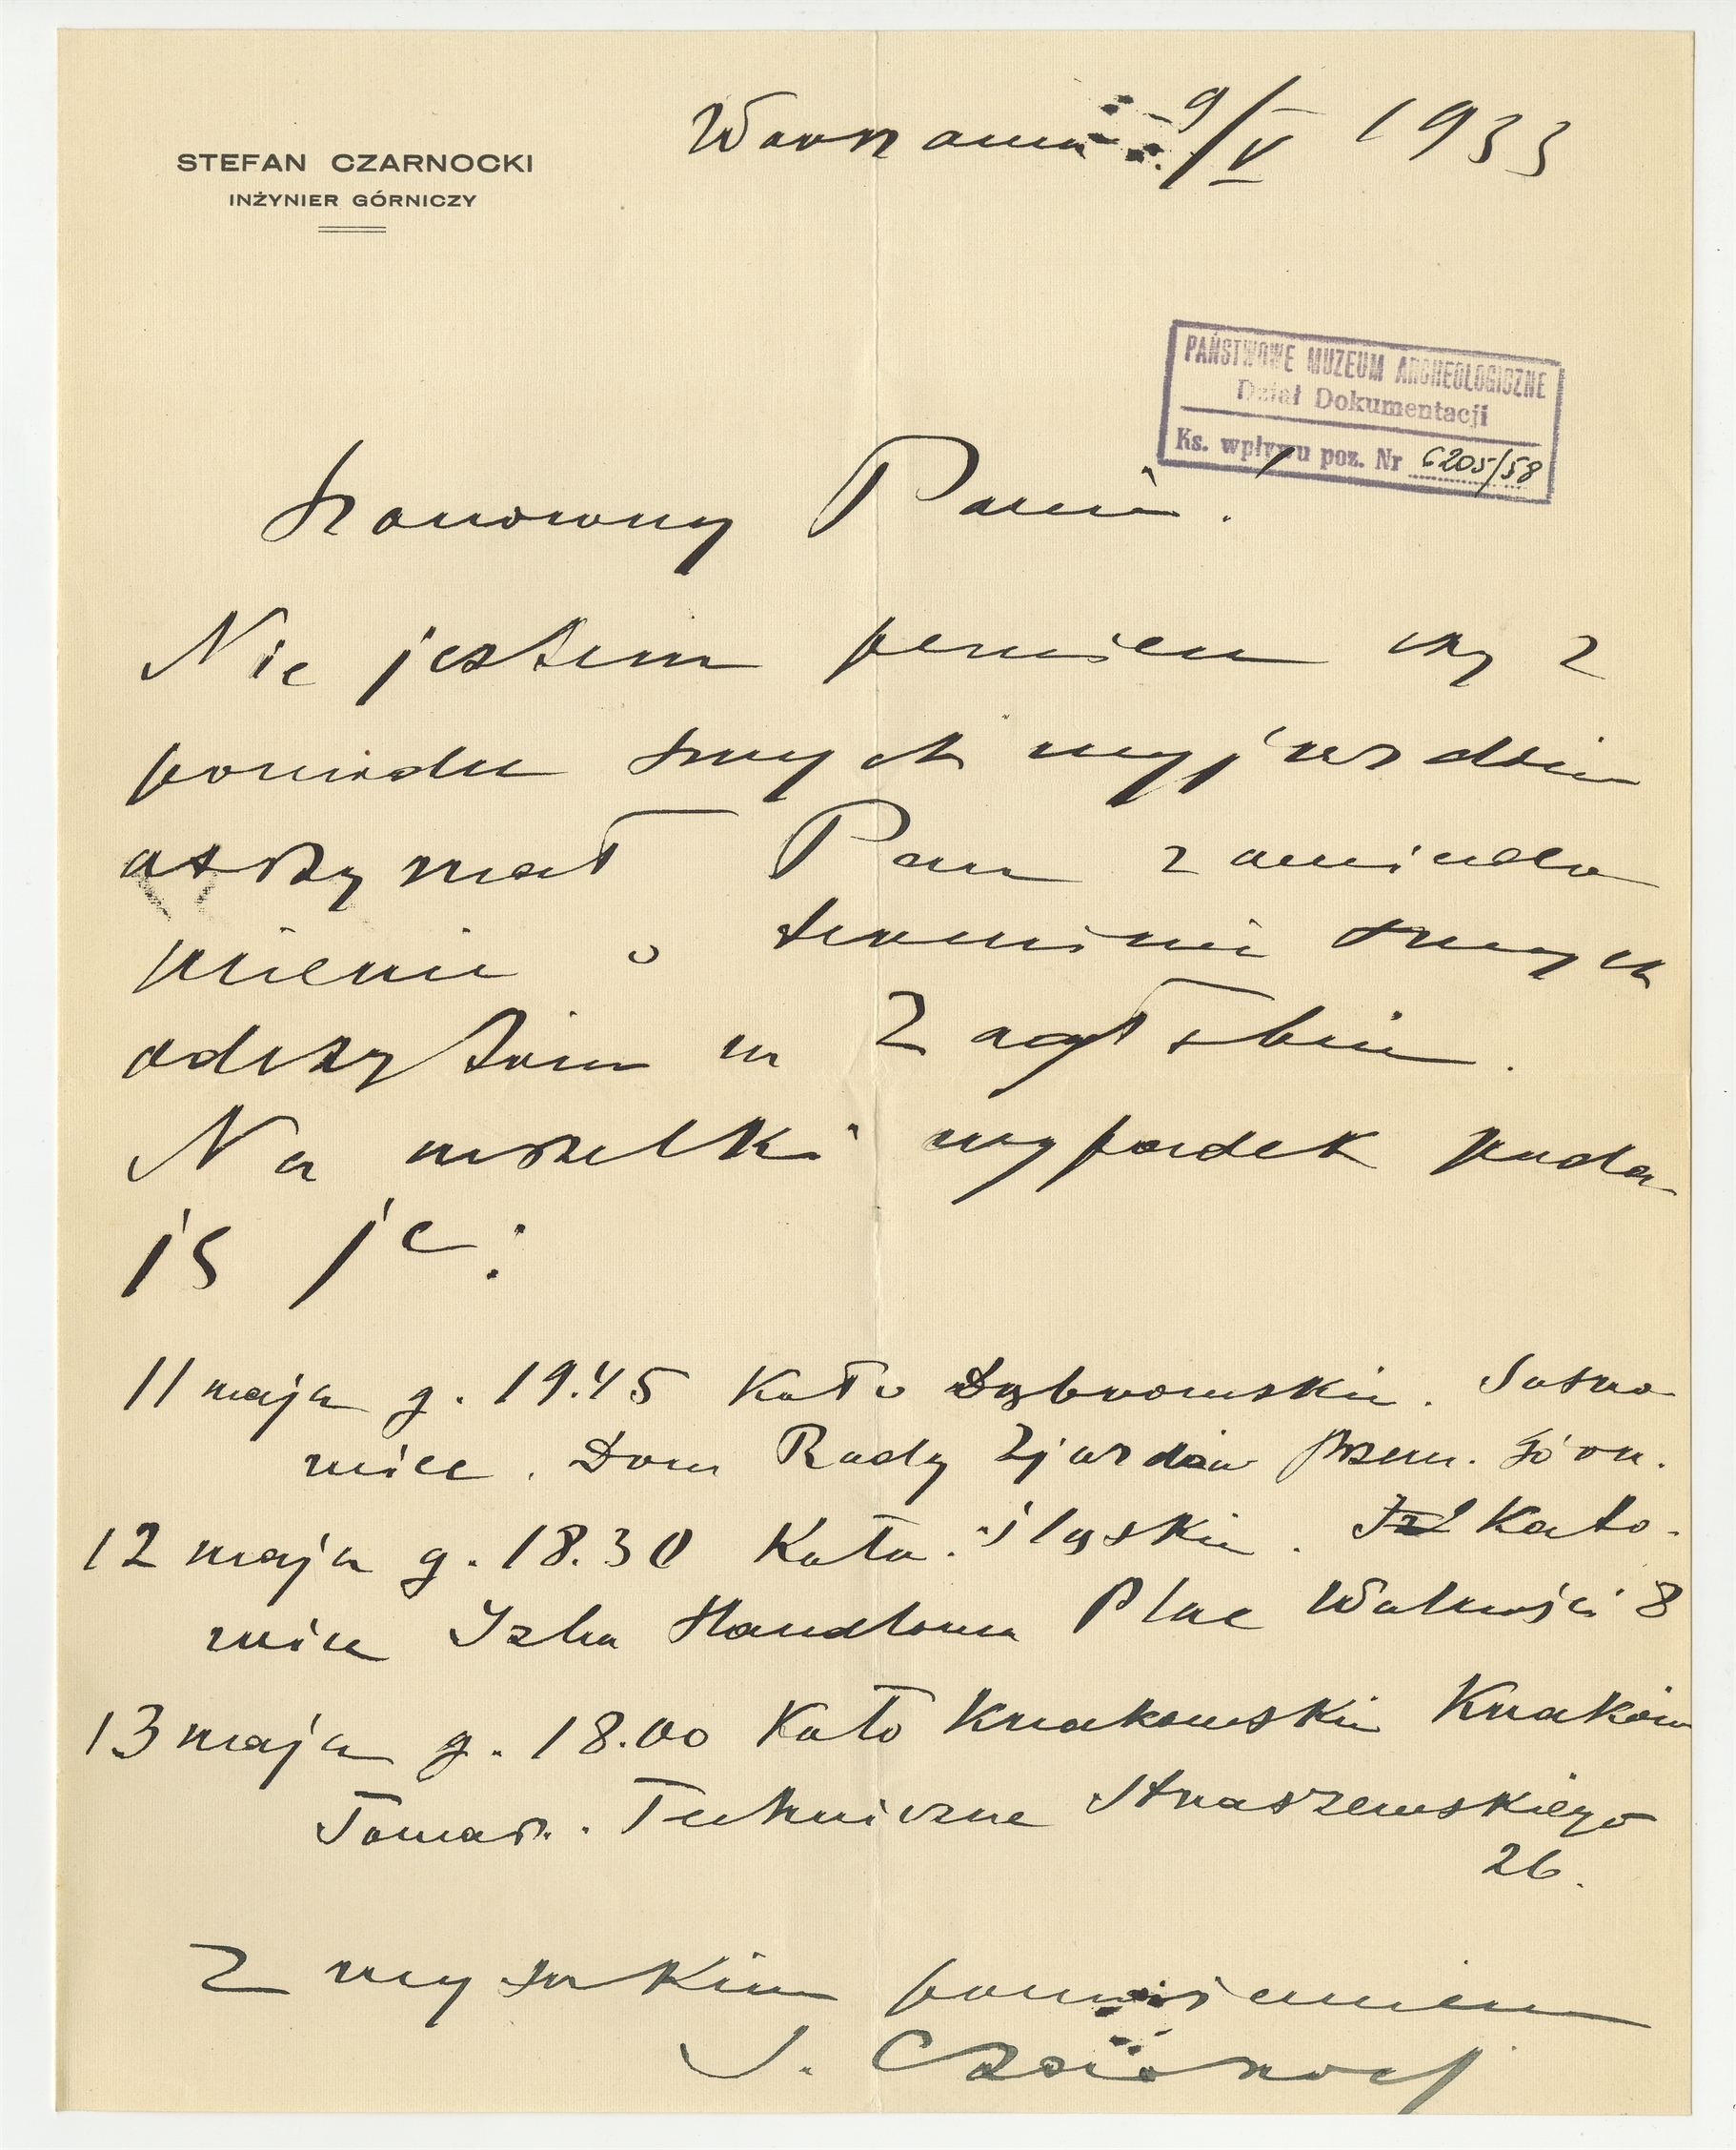 Warszawa 9/V 1933
STEFAN CZARNOCKI
INŻYNIER GÓRNICZY
PAŃSTWOWE MUZEUM ARCHEOLOGICZNE
Dział Dokumentacji
Ks. wpływu poz. Nr 6205/58
Szanowny Panie!
Nie jestem pewien czy z
powodu swych wyjazdów
otrzymał Pan zawiado
mienie o terminie swych
odczytów w Zagłębiu.
Na wszelki wypadek poda
ję je:
11 maja g. 19.45 Koło Dąbrowskie. Sosno
wiec. Dom Rady Zjazdów Przem. Górn.
12 maja g. 18.30 Koło Śląskie. Kato-
wice Izba Handlowa Plac Wolności 8
13 maja g. 18.00 Koło Krakowskie Kraków
Towarz. Techniczne Straszewskiego
26.
Z wysokim poważaniem
S. Czarnocki